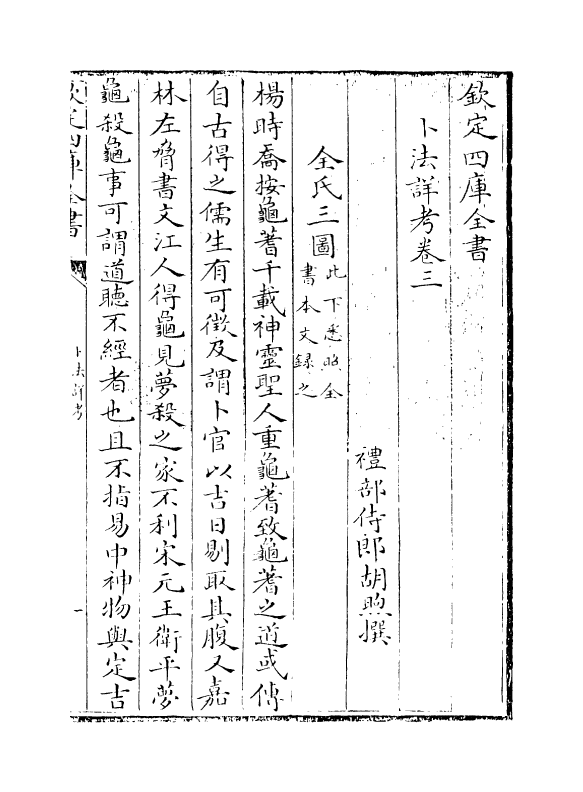 欽定四庫全書
卜法詳考卷三
禮部侍郎胡煦撰
全氏三圖此下悉照全
書本文錄之
楊時喬按龜蓍千載神靈聖人重龜蓍致龜蓍之道或傳
自古得之儒生有可徵及謂卜官以吉日剔取其腹又嘉
林左脅書文江人得龜見夢殺之家不利宋元王衛平夢
龜殺龜事可謂道聽不經者也且不指易中神物與定吉
欽定四庫全書
卜法詳考
一